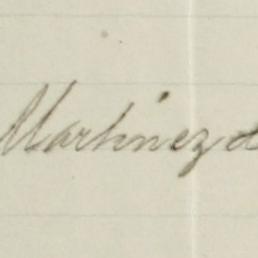 Martinez d